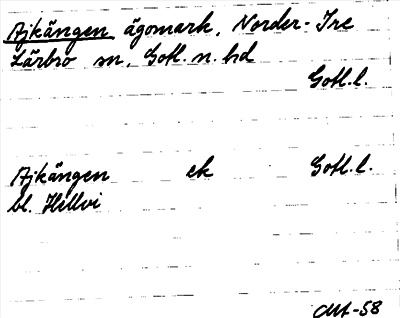 Ajkängen ägomark, Norder-Ire
Lärbro sn, Gotl. n. hd
Gotl.l.
Ajkängen ek Gotl.l.
bl. Hellvi
-58